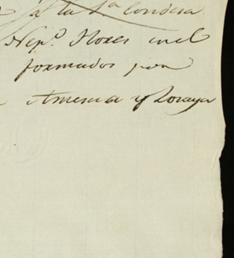 á la S.ª Condesa
Nep.º Flores en el
formados por
Amescua y Loraya